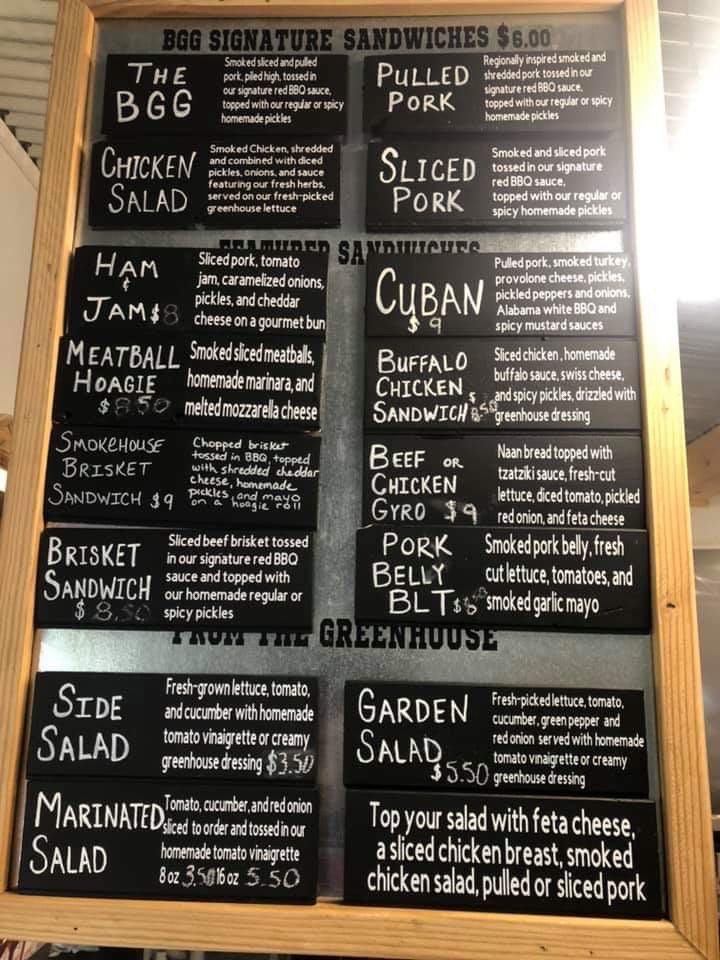 BGG SIGNATURE SANDWICHES $6.00
THE
BGG
Smoked sliced and pulled
pork, piled high, tossed in
our signature red BBQ sauce,
topped with our regular or spicy
homemade pickles
PULLED
PORK
Regionally inspired smoked and
shredded pork tossed in our
signature red BBQ sauce,
topped with our regular or spicy
homemade pickles
CHICKEN
SALAD
Smoked Chicken, shredded
and combined with diced
pickles, onions, and sauce
featuring our fresh herbs,
served on our fresh-picked
greenhouse lettuce
SLICED
PORK
Smoked and sliced pork
tossed in our signature
red BBQ sauce,
topped with our regular or
spicy homemade pickles
FEATURED SANDWICHES
HAM
&
JAM $8
Sliced pork, tomato
jam, caramelized onions,
pickles, and cheddar
cheese on a gourmet bun
CUBAN
$9
Pulled pork, smoked turkey,
provolone cheese, pickles,
pickled peppers and onions,
Alabama white BBQ and
spicy mustard sauces
MEATBALL
HOAGIE
$8.50
Smoked sliced meatballs,
homemade marinara, and
melted mozzarella cheese
BUFFALO
CHICKEN
SANDWICH $8.50
Sliced chicken, homemade
buffalo sauce, swiss cheese,
and spicy pickles, drizzled with
greenhouse dressing
SMOKEHOUSE
BRISKET
SANDWICH $9
Chopped brisket
tossed in BBQ, topped
with shredded cheddar
cheese, homemade
pickles, and mayo
on a hoagie roll
BEEF OR
CHICKEN
GYRO $9
Naan bread topped with
tzatziki sauce, fresh-cut
lettuce, diced tomato, pickled
red onion, and feta cheese
BRISKET
SANDWICH
$8.50
Sliced beef brisket tossed
in our signature red BBQ
sauce and topped with
our homemade regular or
spicy pickles
PORK
BELLY
BLT
Smoked pork belly, fresh
cut lettuce, tomatoes, and
smoked garlic mayo
FROM THE GREENHOUSE
SIDE
SALAD
Fresh-grown lettuce, tomato,
and cucumber with homemade
tomato vinaigrette or creamy
greenhouse dressing $3.50
GARDEN
SALAD
$5.50
Fresh-picked lettuce, tomato,
cucumber, green pepper and
red onion served with homemade
tomato vinaigrette or creamy
greenhouse dressing
MARINATED
SALAD
Tomato, cucumber, and red onion
sliced to order and tossed in our
homemade tomato vinaigrette
8 oz 3.50 16 oz 5.50
Top your salad with feta cheese,
a sliced chicken breast, smoked
chicken salad, pulled or sliced pork